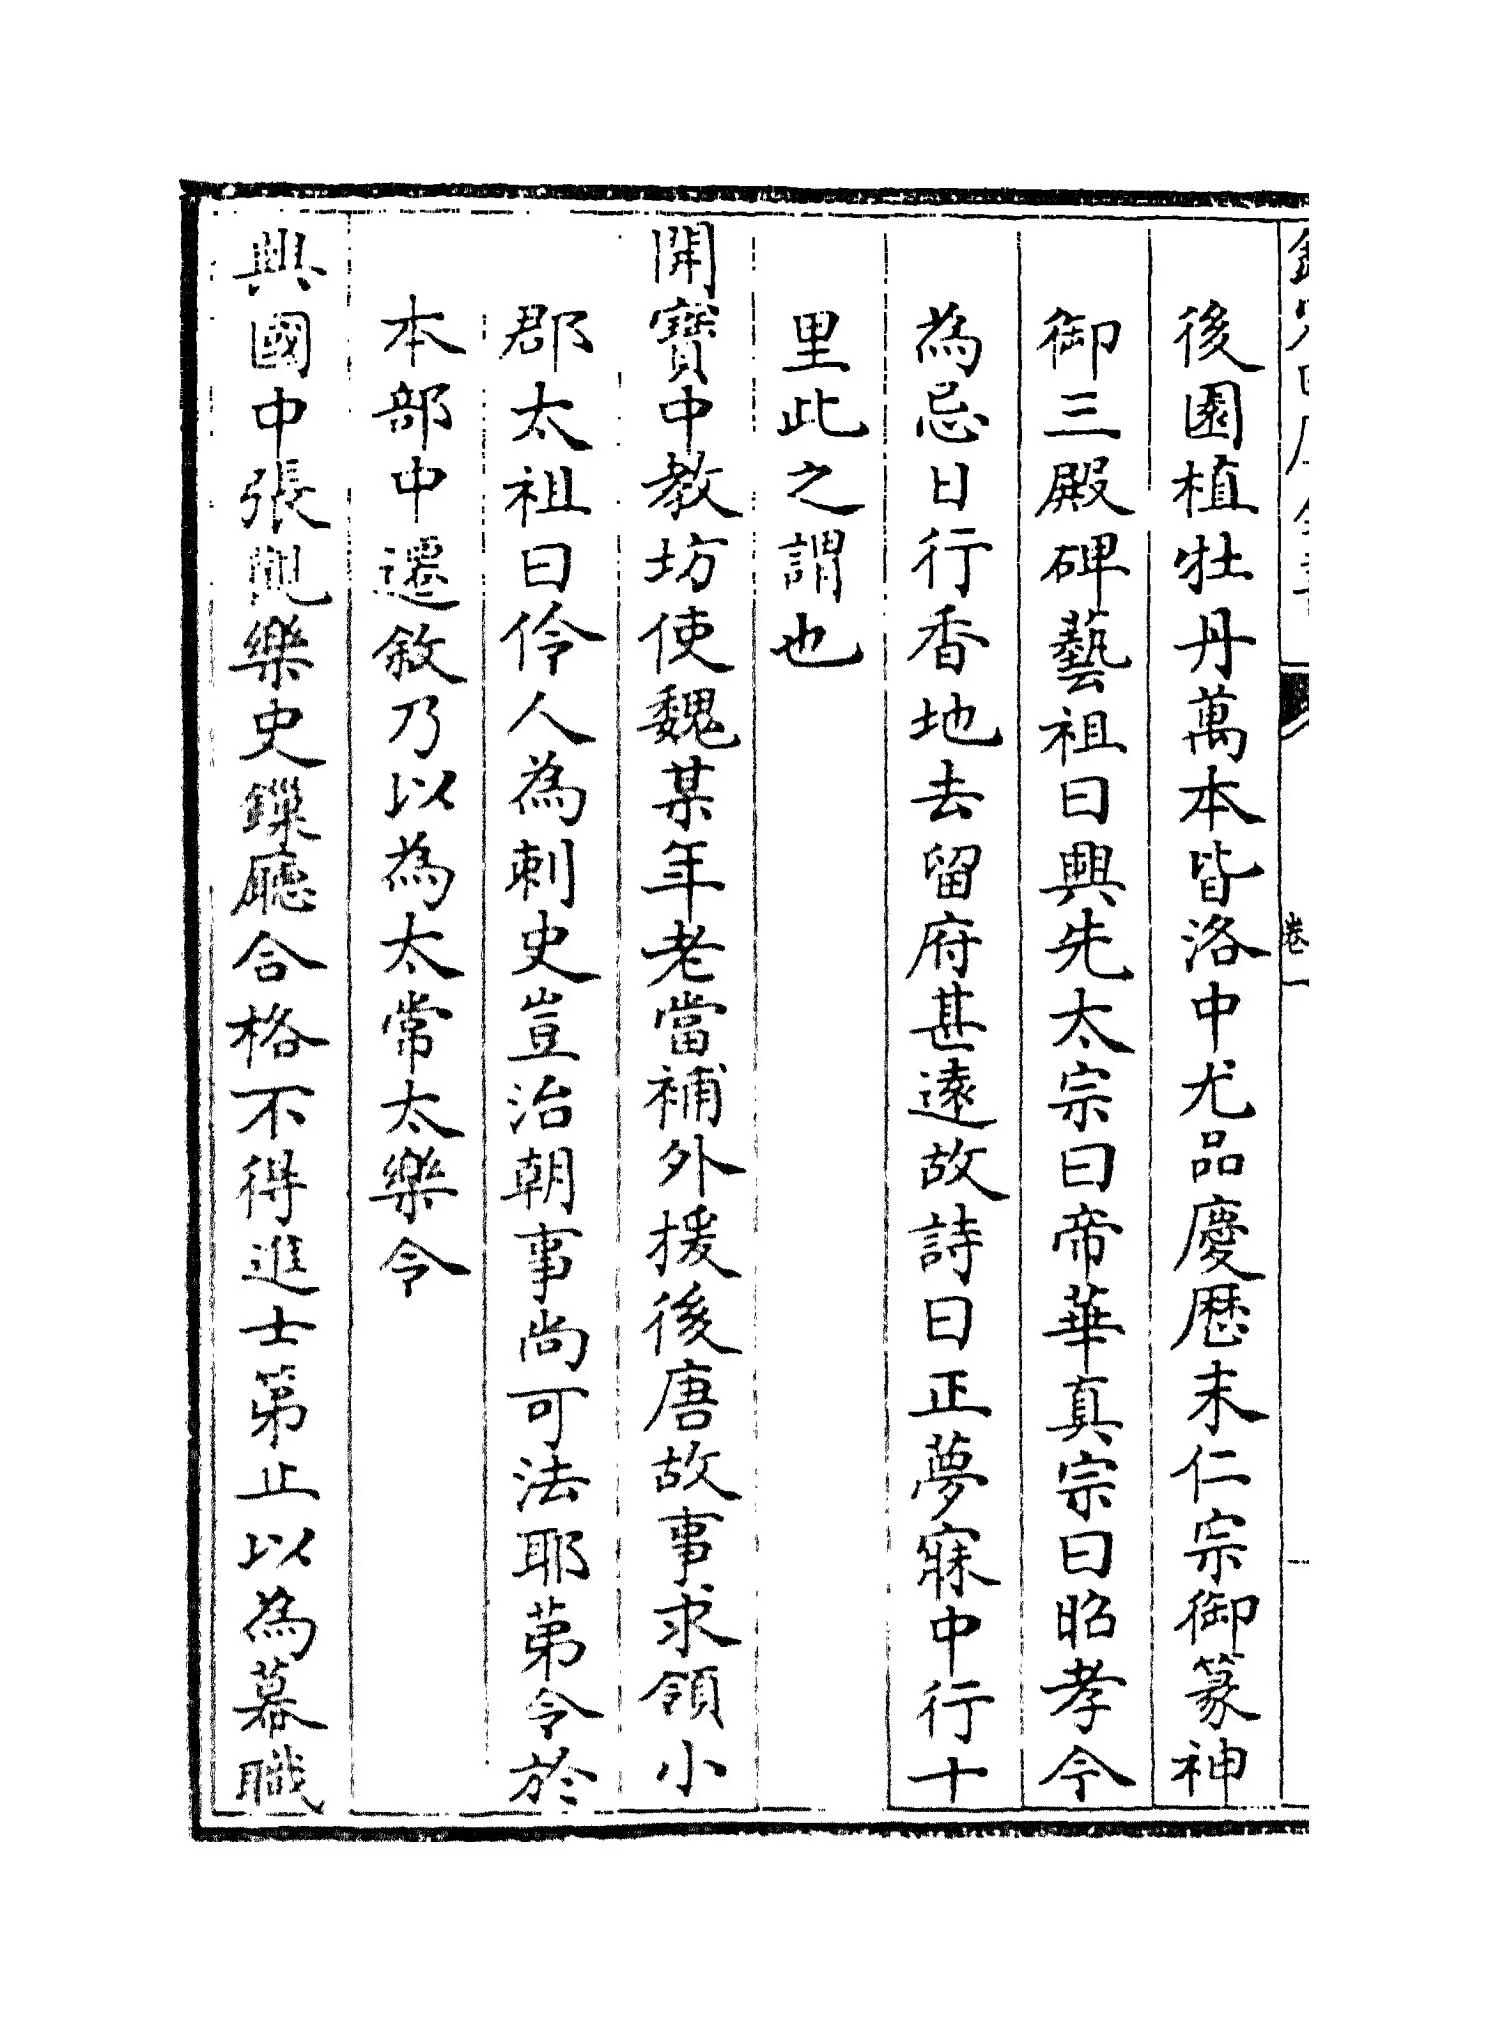 欽定四庫全書
卷一
後園植牡丹萬本皆洛中尤品慶厯末仁宗御篆神
御三殿碑藝祖曰興先太宗曰帝華真宗曰昭孝今
為忌日行香地去留府甚遠故詩曰正夢寐中行十
里此之謂也
開寶中教坊使魏某年老當補外援後唐故事求領小
郡太祖曰伶人為刺史豈治朝事尚可法耶第令於
本部中遷敘乃以為太常太樂令
興國中張觀樂史鏁廳合格不得進士第止以為幕職